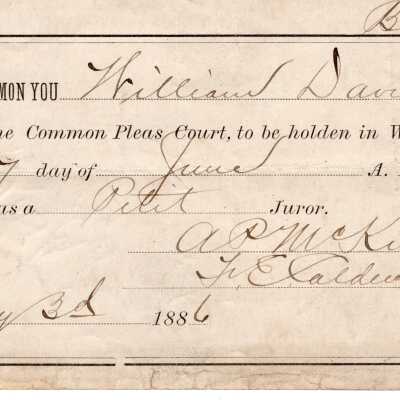 B
MON YOU William Davi
he Common Pleas Court, to be holden in W
7 day of June A.
as a Petit Juror.
A P McKi
F. E. Caldw
y 3d 1886